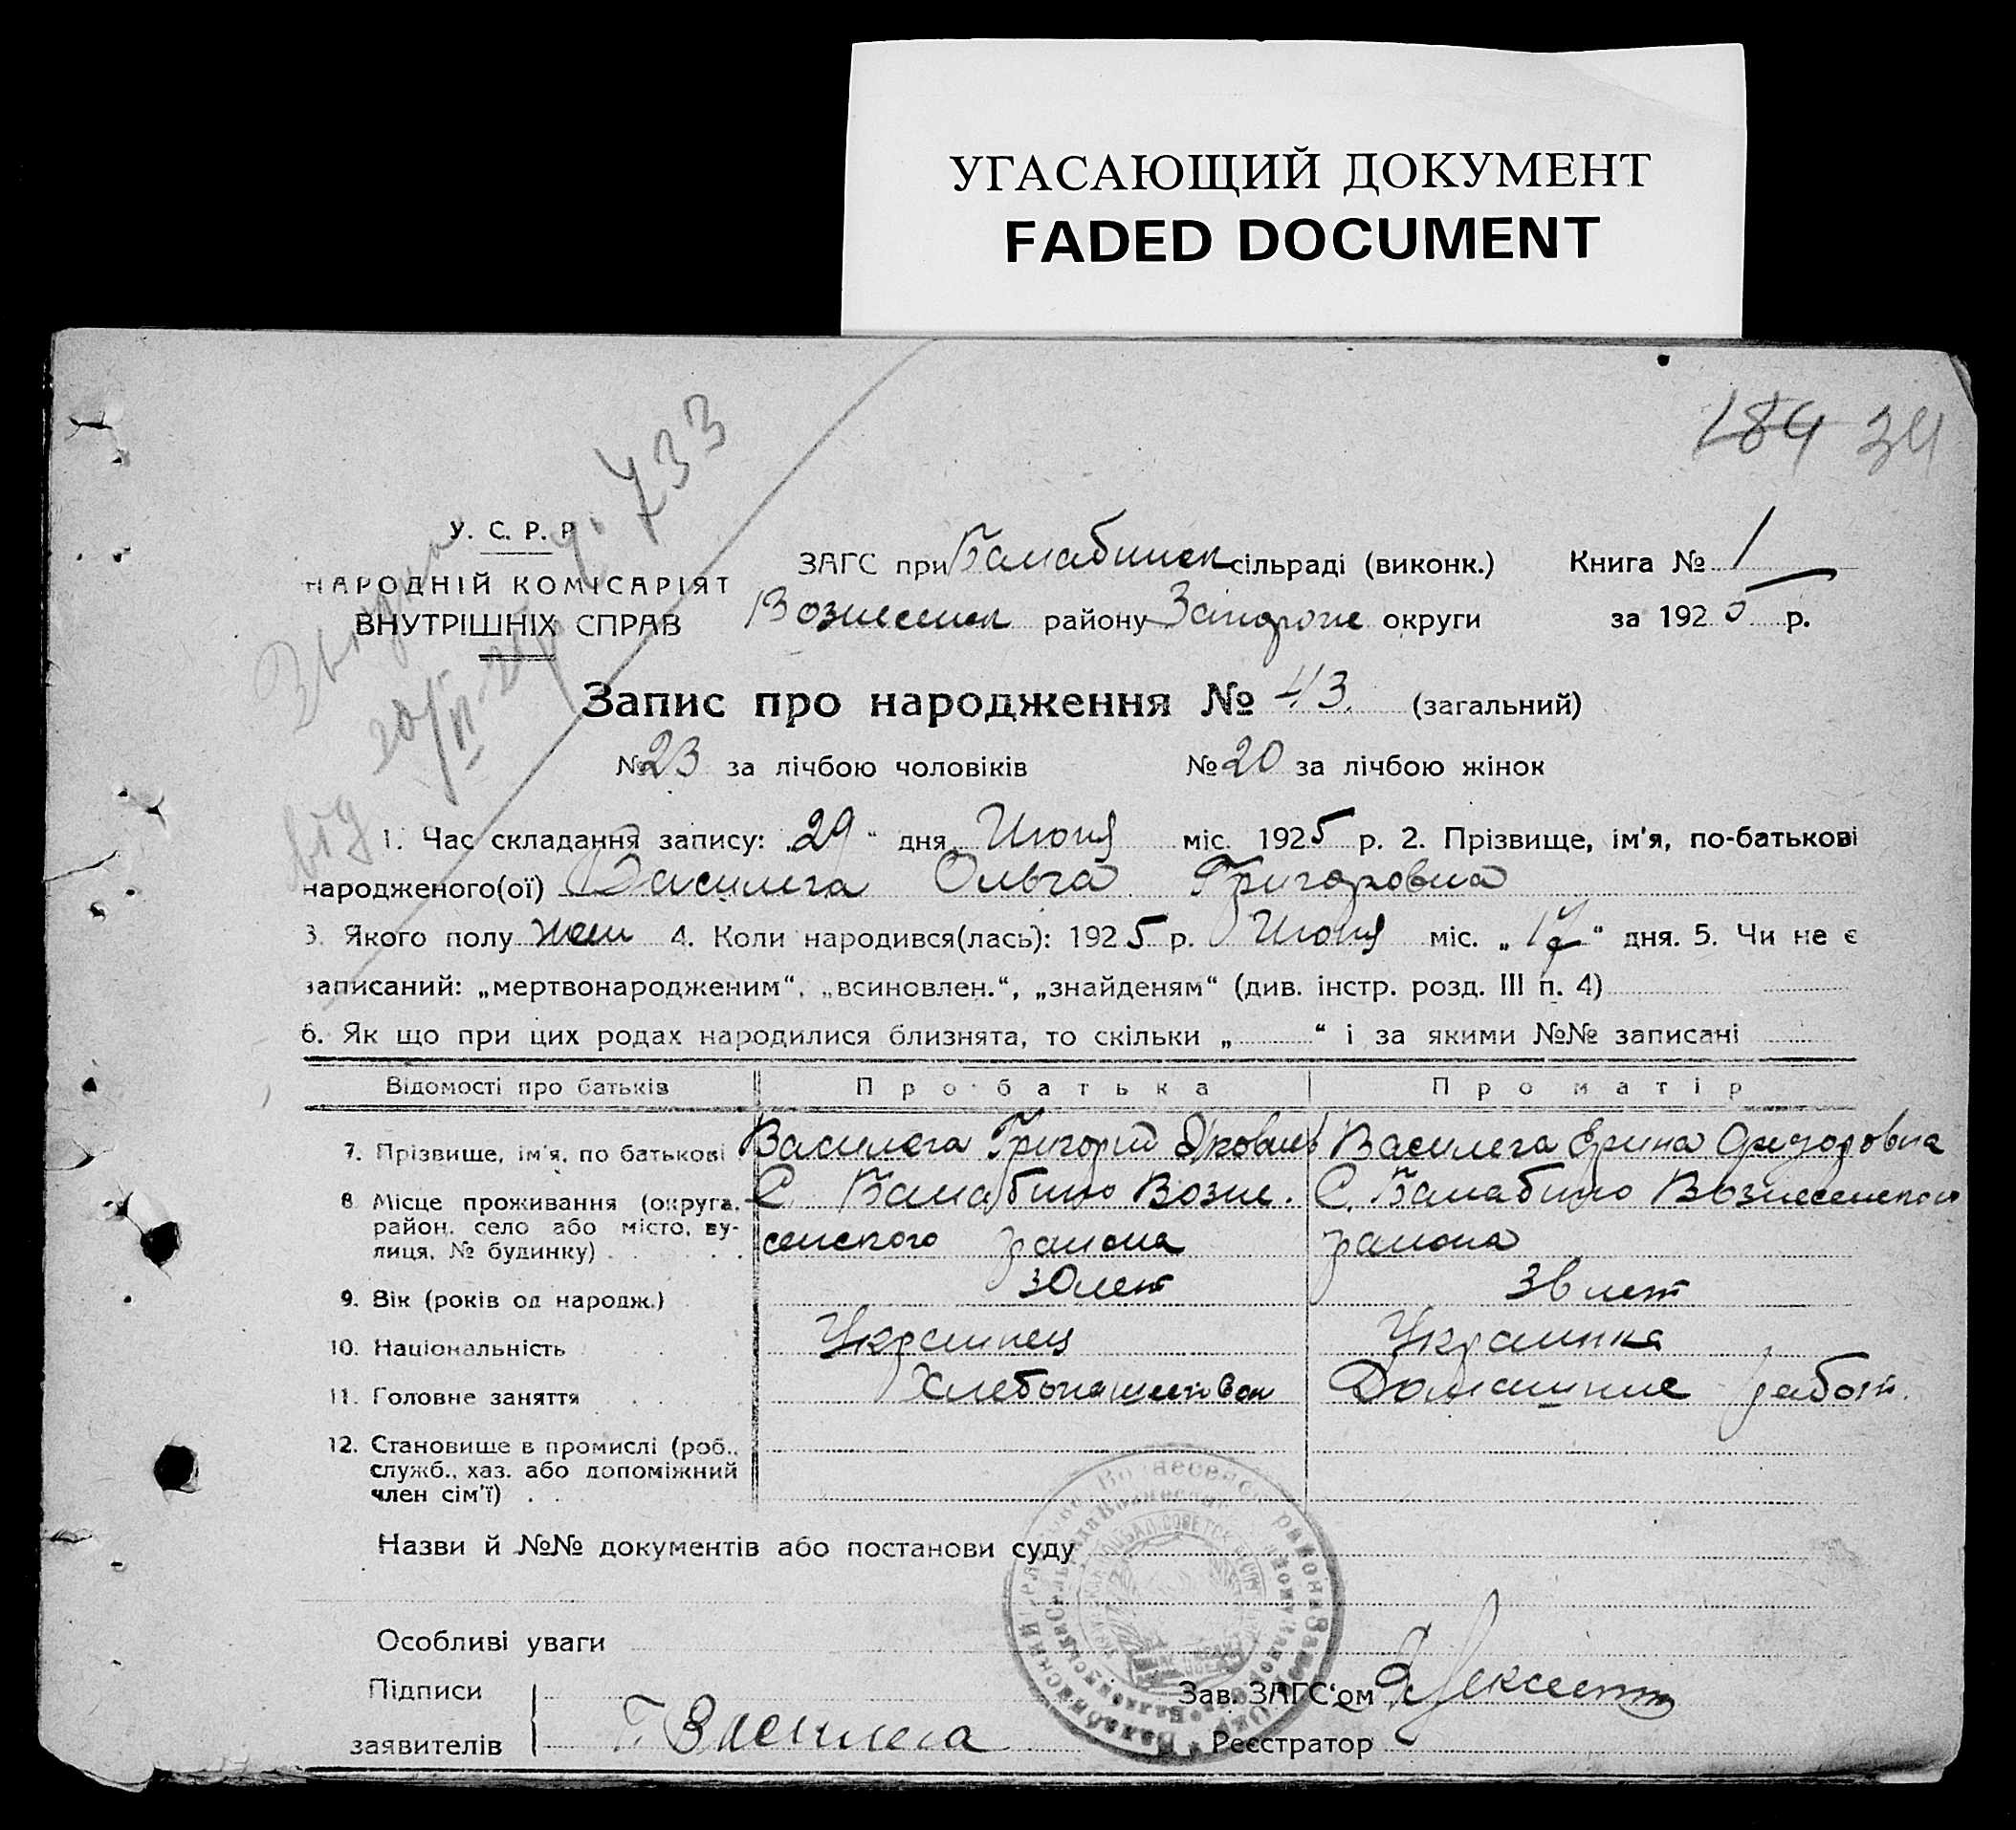 УГАСАЮЩИЙ ДОКУМЕНТ
FADED DOCUMENT
184 34
ч. 733
У. С. Р. Р.
НАРОДНІЙ КОМІСАРІЯТ
ВНУТРІШНІХ СПРАВ
ЗАГС при Балабинск сільраді (виконк.) Книга № 1
Вознесенск району Запорож округи за 1925 р.
Запис про народження № 43. (загальний)
№ 23 за лічбою чоловіків № 20 за лічбою жінок
1. Час складання запису: „29“ дня Июня міс. 1925 р. 2. Прізвище, ім'я, по-батькові
народженого(ої) Василега Ольга Григоровна
3. Якого полу жен 4. Коли народився(лась): 1925 р. Июня міс. „17“ дня. 5. Чи не є
записаний: „мертвонародженим“, „всиновлен.“, „знайденям“ (див. інстр. розд. III п. 4)
6. Як що при цих родах народилися близнята, то скільки „ “ і за якими №№ записані
Відомості про батьків Про батька Про матір
7. Прізвище, ім'я, по батькові Василега Григорий Яковлев Василега Ерина Федоровна
8. Місце проживання (округа, район, село або місто, вулиця, № будинку) С. Балабино Возне-
сенского района С. Балабино Вознесенского
района
9. Вік (років од народж.) 30 лет 36 лет
10. Національність Украинец Украинка
11. Головне заняття Хлебопашеством Домашние работ.
12. Становище в промислі (роб.,
служб., хаз. або допоміжний
член сім'ї)
Назви й №№ документів або постанови суду
Особливі уваги
Підписи
заявителів Г. Василега
Зав. ЗАГС'ом
Реєстратор